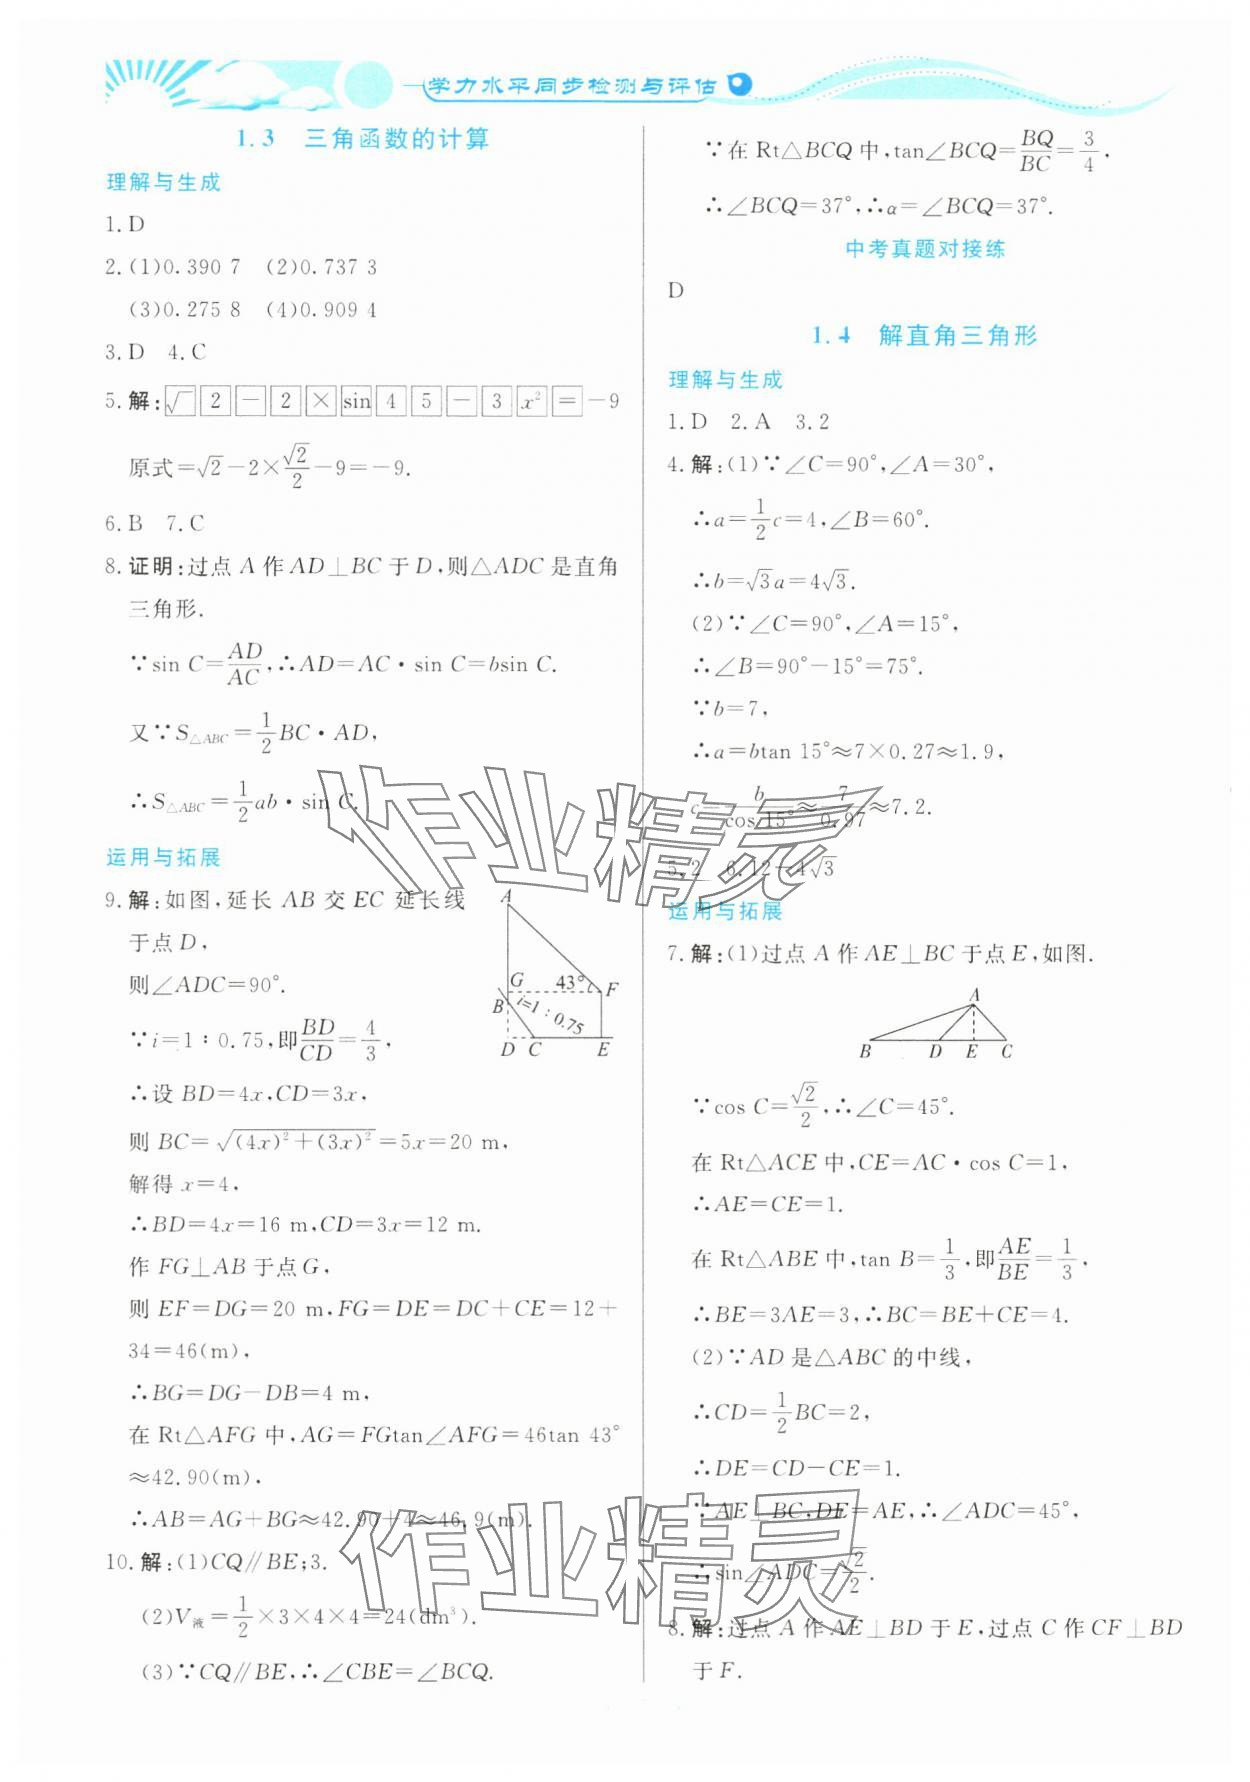 学力水平同步检测与评估
1.3 三角函数的计算
理解与生成
1.D
2.(1)0.390 7 (2)0.737 3
(3)0.275 8 (4)0.909 4
3.D 4.C
5.解:√ 2 − 2 × sin 4 5 − 3 x² = −9
原式=√2−2×√2/2−9=−9.
6.B 7.C
8.证明:过点 A 作 AD⊥BC 于 D,则△ADC 是直角
三角形.
∵sin C=AD/AC,∴AD=AC·sin C=bsin C.
又∵S△ABC=1/2 BC·AD,
∴S△ABC=1/2 ab·sin C.
运用与拓展
9.解:如图,延长 AB 交 EC 延长线
于点 D,
则∠ADC=90°.
∵i=1∶0.75,即BD/CD=4/3,
∴设 BD=4x,CD=3x,
则 BC=√((4x)²+(3x)²)=5x=20 m,
解得 x=4,
∴BD=4x=16 m,CD=3x=12 m.
作 FG⊥AB 于点 G,
则 EF=DG=20 m,FG=DE=DC+CE=12+
34=46(m),
∴BG=DG−DB=4 m,
在 Rt△AFG 中,AG=FGtan∠AFG=46tan 43°
≈42.90(m),
∴AB=AG+BG≈42.90+4≈46.9(m).
A
G 43° F
B i=1∶0.75
D C E
10.解:(1)CQ∥BE;3.
(2)V液=1/2×3×4×4=24(dm³).
(3)∵CQ∥BE,∴∠CBE=∠BCQ.
∵在 Rt△BCQ 中,tan∠BCQ=BQ/BC=3/4,
∴∠BCQ=37°,∴α=∠BCQ=37°.
中考真题对接练
D
1.4 解直角三角形
理解与生成
1.D 2.A 3.2
4.解:(1)∵∠C=90°,∠A=30°,
∴a=1/2 c=4,∠B=60°.
∴b=√3a=4√3.
(2)∵∠C=90°,∠A=15°,
∴∠B=90°−15°=75°.
∵b=7,
∴a=btan 15°≈7×0.27≈1.9,
c=b/cos 15°≈7/0.97≈7.2.
5.2 6.12−4√3
运用与拓展
7.解:(1)过点 A 作 AE⊥BC 于点 E,如图.
A
B D E C
∵cos C=√2/2,∴∠C=45°.
在 Rt△ACE 中,CE=AC·cos C=1,
∴AE=CE=1.
在 Rt△ABE 中,tan B=1/3,即AE/BE=1/3,
∴BE=3AE=3,∴BC=BE+CE=4.
(2)∵AD 是△ABC 的中线,
∴CD=1/2 BC=2,
∴DE=CD−CE=1.
∵AE⊥BC,DE=AE,∴∠ADC=45°,
∴sin∠ADC=√2/2.
8.解:过点 A 作 AE⊥BD 于 E,过点 C 作 CF⊥BD
于 F.
作业精灵
作业精灵